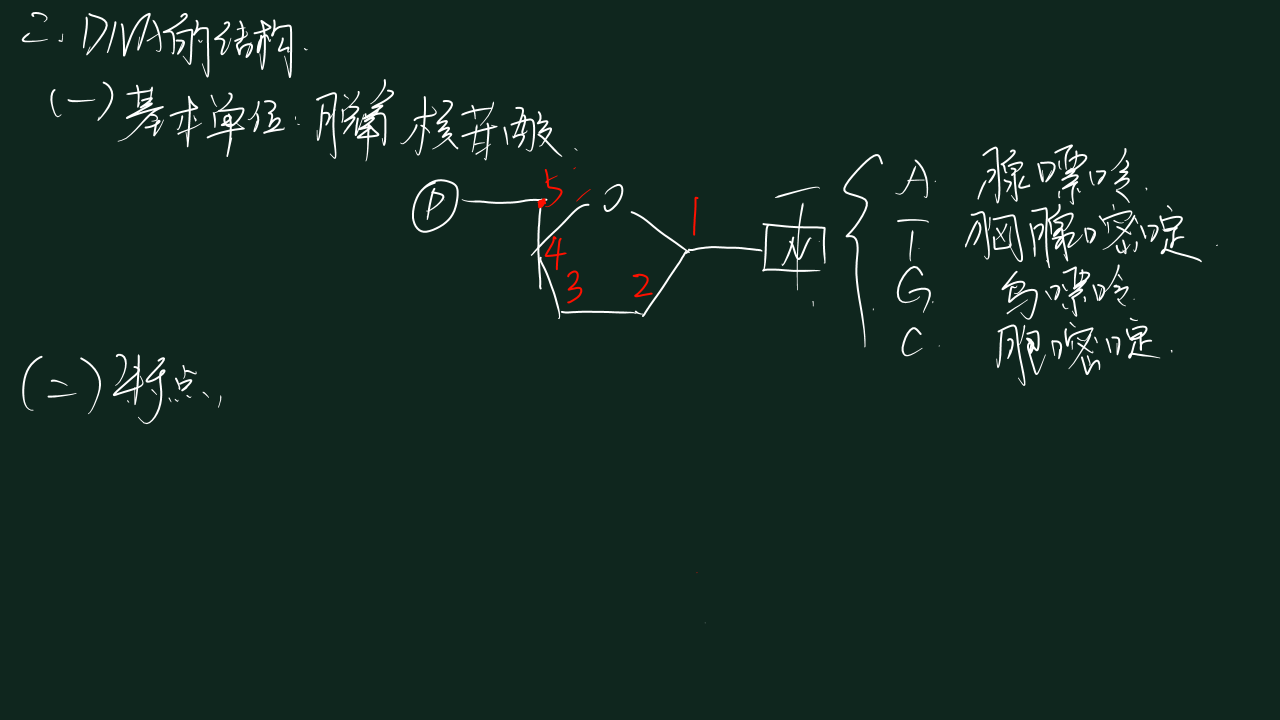 2. DNA的结构.
(一)基本单位:脱氧核苷酸.
P 5 O 1 N
4 3 2
A. 腺嘌呤.
T 胸腺嘧啶.
G. 鸟嘌呤.
C. 胞嘧啶.
(二)特点,